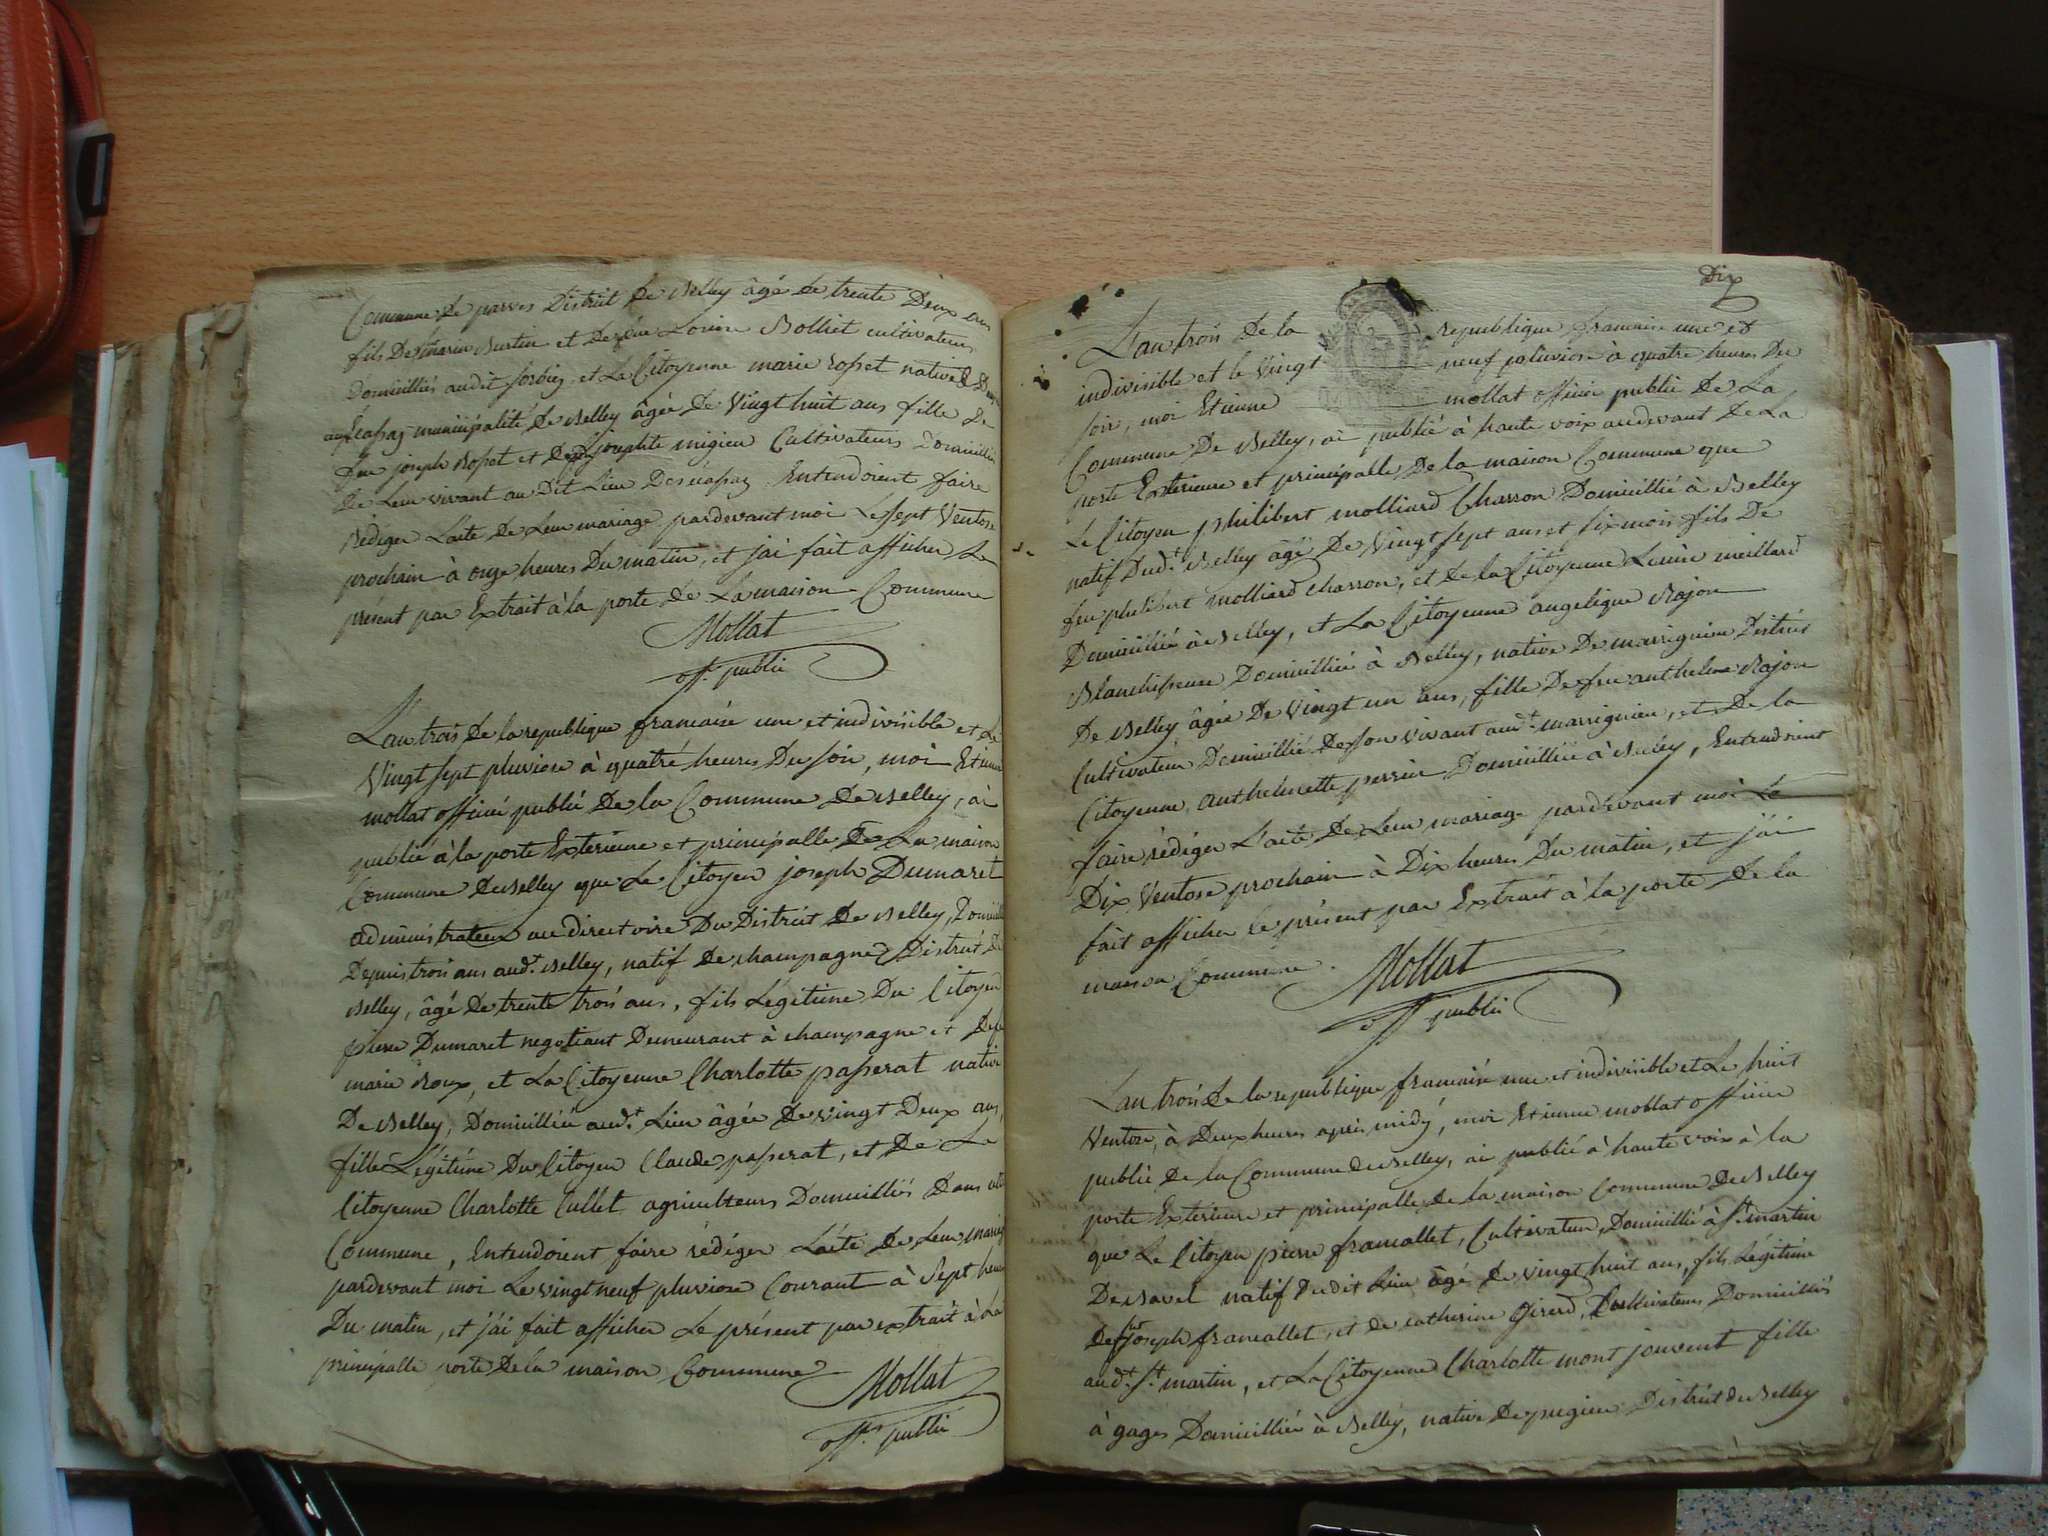 Commune de parves District de Belley âgé de trente Deux ans
fils De Marin Burtin et De feue Louise Bolliet cultivateurs
Domiciliés audit et La Citoyenne marie rosset native
municipalité de Belley âgée De Vingt huit ans fille De
feu joseph Rosset et De josephte migieu Cultivateurs Domiciliés
De Leur vivant au Dit Lieu Entendoient faire
Rediger L'acte de Leur mariage pardevant moi Le sept Ventose
prochain à onze heures Du matin, et j'ai fait afficher Le
présent par Extrait à la porte de La maison Commune
Mollat
off. public
L'an trois De la republique francaise une et indivisible et Le
Vingt sept pluviose à quatre heures Du soir, moi Etienne
mollat officié public De la Commune De Belley, ai
publié à la porte Exterieure et principalle De La maison
Commune de Belley que Le Citoyen joseph Dumaret
administrateur au directoire Du District De Belley, Domicilié
Depuis trois ans aud.t Belley, natif de champagne District De
Belley, âgé De trente trois ans, fils Légitime Du Citoyen
pierre Dumaret negotiant Demeurant à champagne et De
marie Roux, et La Citoyenne Charlotte passerat native
De Belley, Domiciliée aud.t Lieu âgée De Vingt Deux ans,
fille Légitime Du Citoyen Claude passerat, et De La
Citoyenne Charlotte Cullet agriculteurs Domiciliés Dans
Commune, Entendoient faire rédiger L'acte De Leur mariage
pardevant moi Le vingt neuf pluviose Courant à Sept heures
Du matin, et j'ai fait afficher Le présent par extrait à La
principalle porte De la maison Commune
Mollat
off. public
Dix
L'an trois De la republique francaise une et
indivisible et le Vingt neuf pluviose à quatre heures Du
soir, moi Etienne mollat officier public De La
Commune De Belley, ai publié à haute voix audevant De La
porte Exterieure et principalle De la maison Commune que
Le Citoyen philibert molliard Charron Domicilié à Belley
natif Dud.t Belley âgé De Vingt sept ans et six mois fils De
feu philibert molliard charron, et de la Citoyenne Louise meillard
Domiciliée à Belley, et La Citoyenne angelique Rojon
Blanchisseuse Domiciliée à Belley, native De marignieu District
De Belley âgée De Vingt un ans, fille De feu anthelme Rojon
Cultivateur Domicilié De son vivant aud.t marignieu, et De la
Citoyenne anthelmette perrin Domiciliée à Belley, Entendoient
faire rédiger L'acte De Leur mariage pardevant moi Le
Dix Ventose prochain à Dix heures Du matin, et j'ai
fait afficher le présent par Extrait à la porte De la
maison Commune.
Mollat
off public
L'an trois De la republique francaise une et indivisible et Le huit
Ventose, à Deux heures après midy, moi Etienne mollat officier
public De la Commune de Belley, ai publié à haute voix à la
porte Exterieure et principalle De la maison Commune De Belley
que Le Citoyen pierre francallet, Cultivateur, Domicilié à St martin
De Bavel natif dudit Lieu âgé De vingt huit ans, fils Légitime
De feu joseph francallet, et de catherine Girerd, Cultivateurs Domiciliés
aud.t St martin, et La Citoyenne Charlotte mont jouvent fille
à gages Domiciliée à Belley, native De pugieu District de Belley